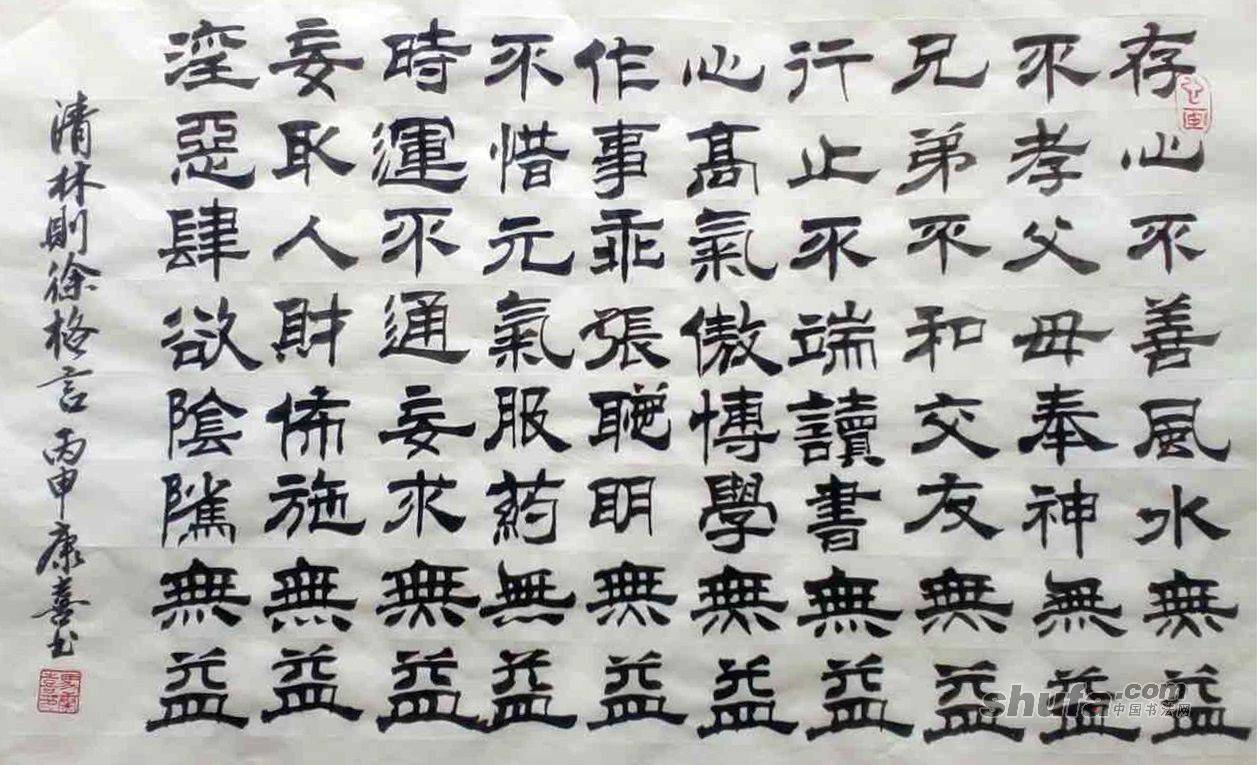 存心不善風水無益
不孝父母奉神無益
兄弟不和交友無益
行止不端讀書無益
心髙氣傲博學無益
作事乖張聰明無益
不惜元氣服葯無益
時運不通妄求無益
妄取人財佈施無益
淫惡肆欲陰騭無益
清林則徐格言 丙申康喜书
shufa.com
中国书法网